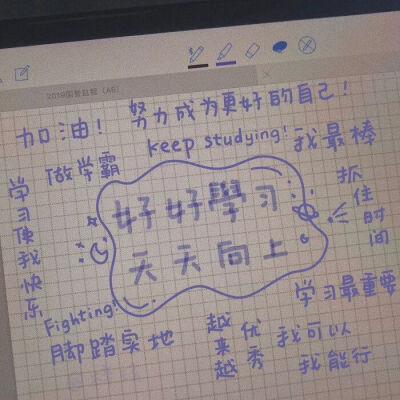 2019国考真题 (A6)
加油!
努力成为更好的自己!
keep studying!
我最棒
做学霸
学习使我快乐
抓住时间
好好學习
天天向上
学习最重要
Fighting!
脚踏实地
越来越优秀
我可以
我能行